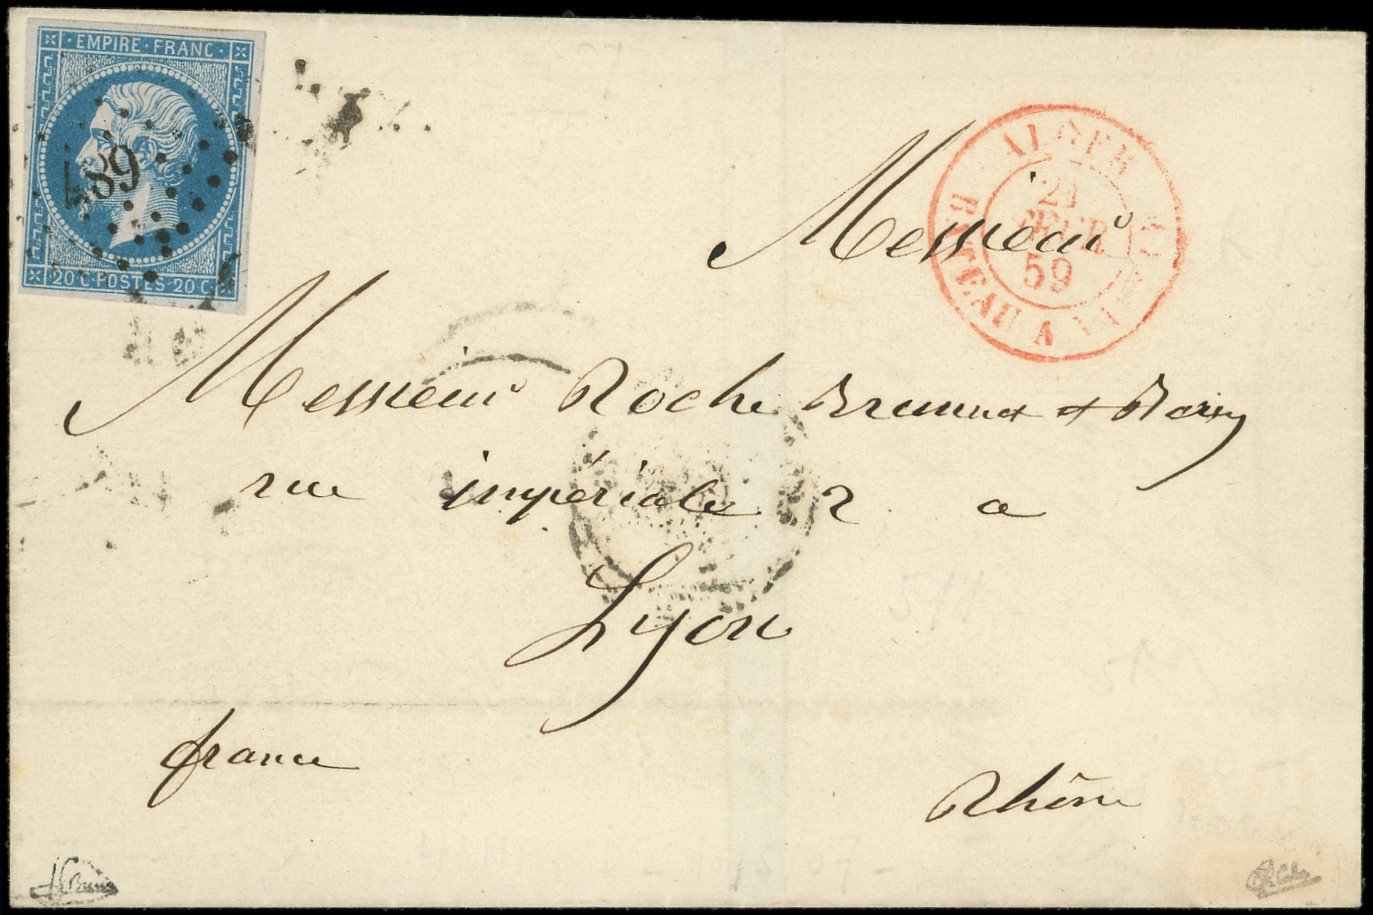 EMPIRE FRANC
20 C POSTES 20 C
ALGER
21
FEVR
59
BATEAU A
Messieurs
Messieurs Roche Brunet et
rue impériale 2 a
Lyon
france
Rhône